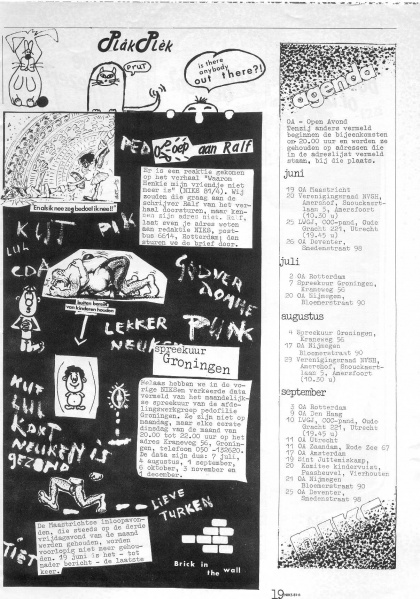 PlàkPlèk
PRUT
is there
anybody
out there?!
PEDO
Oproep aan Ralf
Er is een reaktie gekomen
op het verhaal "Waarom
Henkie mijn vriendje niet
meer is" (NIKS 81/4). Wij
zouden die graag aan de
schrijver Ralf van het ver-
haal doorsturen, maar ken-
nen zijn adres niet. Ralf,
laat even je adres weten
aan redaktie NIKS, post-
bus 6614, Rotterdam; dan
sturen we de brief door.
En als ik nee zeg bedoel ik nee!!
KUT
PIK
LUL
CDA
GODVER
DOMME
buiten bereik
van kinderen houden
LEKKER
NEUKEN
PUNK
spreekuur
Groningen
Helaas hebben we in de vo-
rige NIKSen verkeerde data
vermeld van het maandelijk-
se spreekuur van de afde-
lingswerkgroep pedofilie
Groningen. Ze zijn niet op
maandag, maar elke eerste
dinsdag van de maand van
20.00 tot 22.00 uur op het
adres Kraneweg 56, Gronin-
gen, telefoon 050 -132620.
De data zijn dus: 7 juli,
4 augustus, 1 september,
6 oktober, 3 november en
1 december.
KUT
LUL
KAK
NEUKEN IS
GEZOND
LIEVE
TURKEN
De Maastrichtse inloopavon-
den, die steeds op de derde
vrijdagavond van de maand
werden gehouden, worden
voorlopig niet meer gehou-
den. 19 juni is het - tot
nader bericht - de laatste
keer.
TIET
Brick in
the wall
agenda
OA = Open Avond
Tenzij anders vermeld
beginnen de bijeenkomsten
om 20.00 uur en worden ze
gehouden op adressen die
in de adreslijst vermeld
staan, bij die plaats.
juni
19 OA Maastricht
20 Verenigingsraad NVSH,
Amershof, Snouckaert-
laan 3, Amersfoort
(10.30 u)
25 LWGJ, COO-pand, Oude
Gracht 221, Utrecht
(19.45 u)
26 OA Deventer,
Smedenstraat 98
juli
2 OA Rotterdam
7 Spreekuur Groningen,
Kraneweg 56
20 OA Nijmegen,
Bloemerstraat 90
augustus
4 Spreekuur Groningen,
Kraneweg 56
17 OA Nijmegen
Bloemerstraat 90
Verenigingsraad NVSH,
Amershof, Snouckaert-
laan 3, Amersfoort
(10.30 u)
september
3 OA Rotterdam
OA Den Haag
10 LWGJ, COO-pand, Oude
Gracht 221, Utrecht
(19.45 u)
11 OA Utrecht
11 OA Zaandam, Rode Zee 67
17 OA Amsterdam
19 Sint Juttemiskamp,
20 Komitee kindervuist,
Paasheuvel, Vierhouten
OA Nijmegen
Bloemerstraat 90
25 OA Deventer,
Smedenstraat 98
19